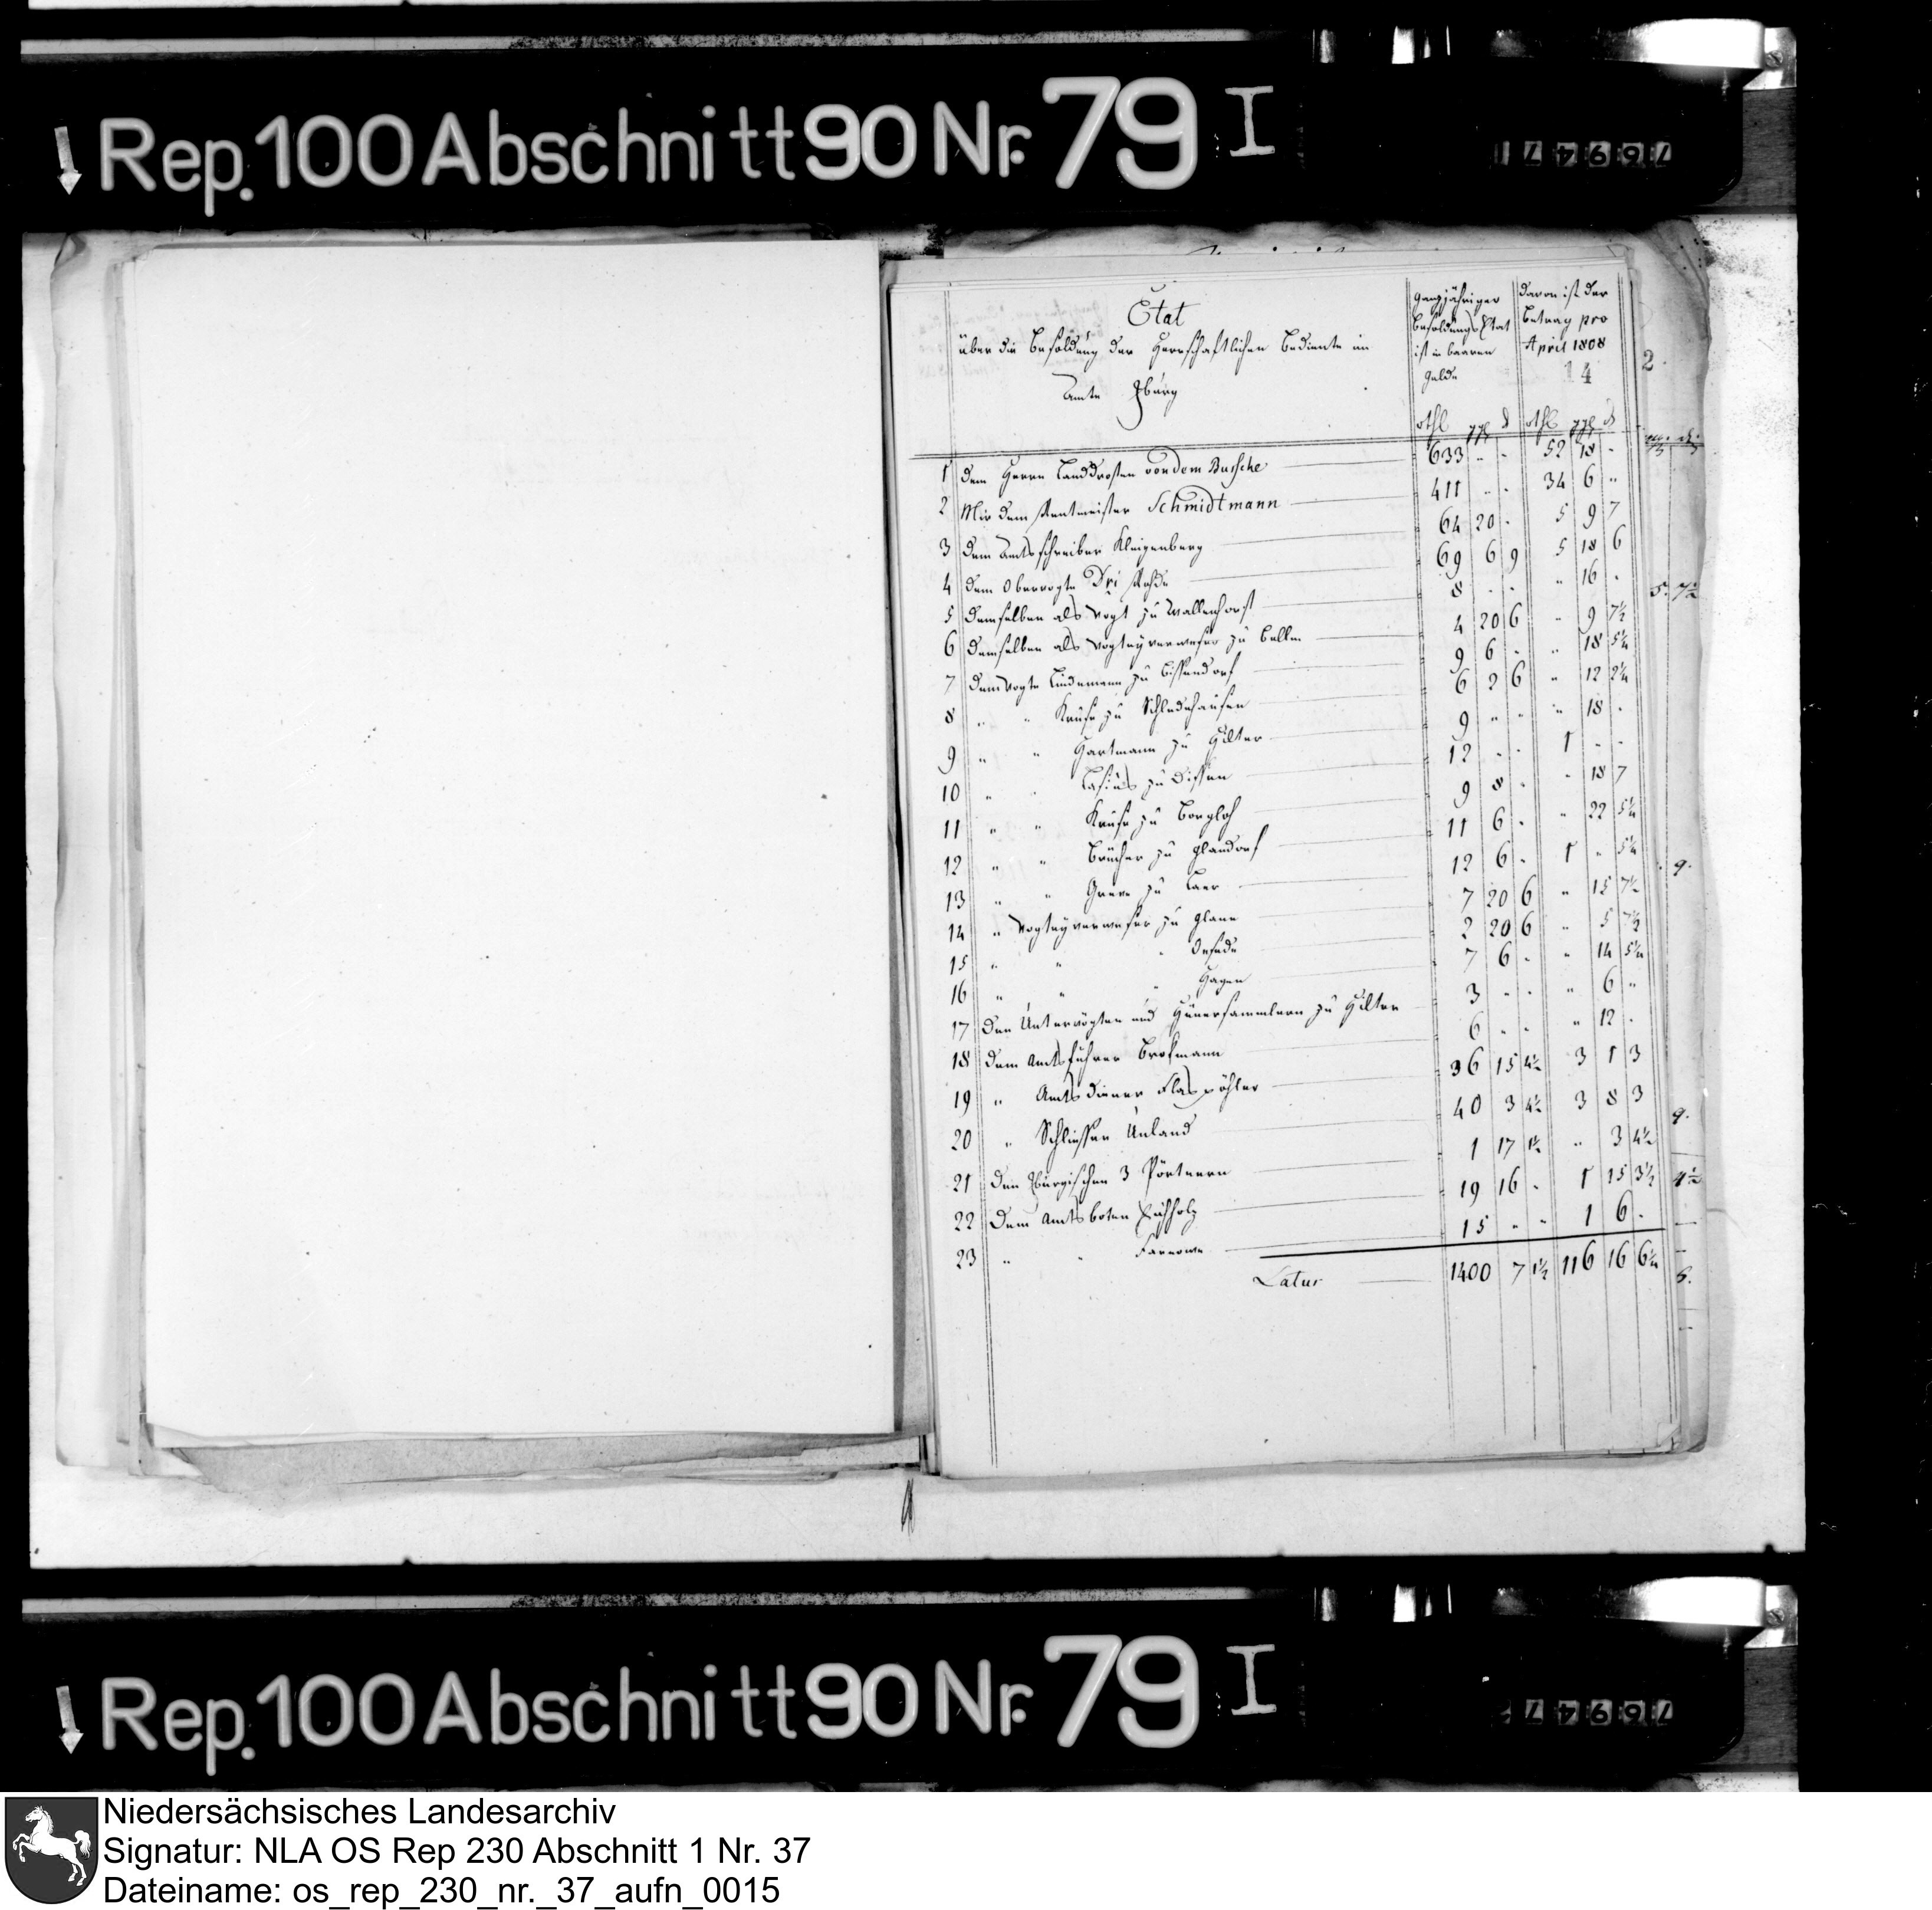 Rep. 100 Abschnitt 90 Nr. 79 I
769471
Etat
über die Besoldung der Herrschaftlichen Bediente im
Amte Iburg
ganzjähriger Besoldungs Etat ist in baaren Gelde
davon ist der Betrag pro April 1808
14
2
rthl ggl d rthl ggl d
1 dem Herrn Landdrosten von dem Bussche 633 " " 52 18 "
2 Mir dem Rentmeister Schmidtmann 411 " " 34 6 "
3 dem Amtsschreiber 64 20 " 5 9 7
4 dem Obervogte Dri Rohde 69 6 9 5 18 6
5 demselben als Vogt zu Wallenhorst 8 " " " 16 "
6 demselben als Vogteyverweser zu Bellm 4 20 6 " 9 7½
7 dem Vogte Lindemann zu Bissendorf 9 6 " " 18 5¼
8 " " Kruse zu Schledehausen 6 2 6 " 12 2¼
9 " " Hartmann zu Hilter 9 " " " 18 "
10 " " Casius zu Dissen 12 " " 1 " "
11 " " Kruse zu Borgloh 9 8 " " 18 7
12 " " Brücher zu Glandorf 11 6 " " 22 5¼
13 " " Greve zu Laer 12 6 " 1 " 5¼
14 " Vogteyverweser zu Glane 7 20 6 " 15 7½
15 " " " Oesede 2 20 6 " 5 7½
16 " " " Hagen 7 6 " " 14 5¼
17 Den Untervögten und Hünersammlern zu Hilter 3 " " " 6 "
18 Dem Amtsführer Brokmann 6 " " " 12 "
19 " Amtsdiener Flaspöhler 36 15 4½ 3 1 3
20 " Schliesser Unland 40 3 4½ 3 8 3
21 Den Iburgischen 3 Pörtnern 1 17 1½ " 3 4½
22 Dem Amtsboten Eichholz 19 16 " 1 15 3½
23 " " 15 " " 1 6 "
Latus 1400 7 1½ 116 16 6¼
Rep. 100 Abschnitt 90 Nr. 79 I
76947
Niedersächsisches Landesarchiv
Signatur: NLA OS Rep 230 Abschnitt 1 Nr. 37
Dateiname: os_rep_230_nr._37_aufn_0015